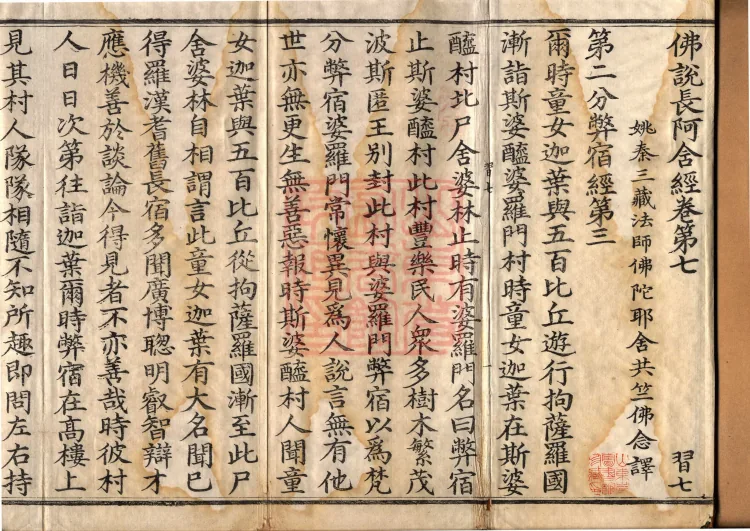 佛說長阿舍經卷第七 習七
姚秦三藏法師佛陀耶舍共竺佛念譯
第二分弊宿經第三
爾時童女迦葉與五百比丘遊行拘薩羅國
漸詣斯婆醯婆羅門村時童女迦葉在斯婆
習七
醯村北尸舍婆林止時有婆羅門名曰弊宿
止斯婆醯村此村豐樂民人眾多樹木繁茂
波斯匿王別封此村與婆羅門弊宿以為梵
分弊宿婆羅門常懷異見為人說言無有他
世亦無更生無善惡報時斯婆醯村人聞童
女迦葉與五百比丘從拘薩羅國漸至此尸
舍婆林自相謂言此童女迦葉有大名聞已
得羅漢耆舊長宿多聞廣博聰明叡智辯才
應機善於談論今得見者不亦善哉時彼村
人日日次第往詣迦葉爾時弊宿在高樓上
見其村人隊隊相隨不知所趣即問左右持